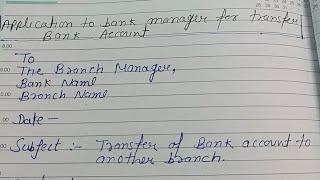 Application to bank manager for transfer
Bank Account
To
The Branch Manager,
Bank Name
Branch Name
Date -
Subject :- Transfer of Bank account to
another branch.